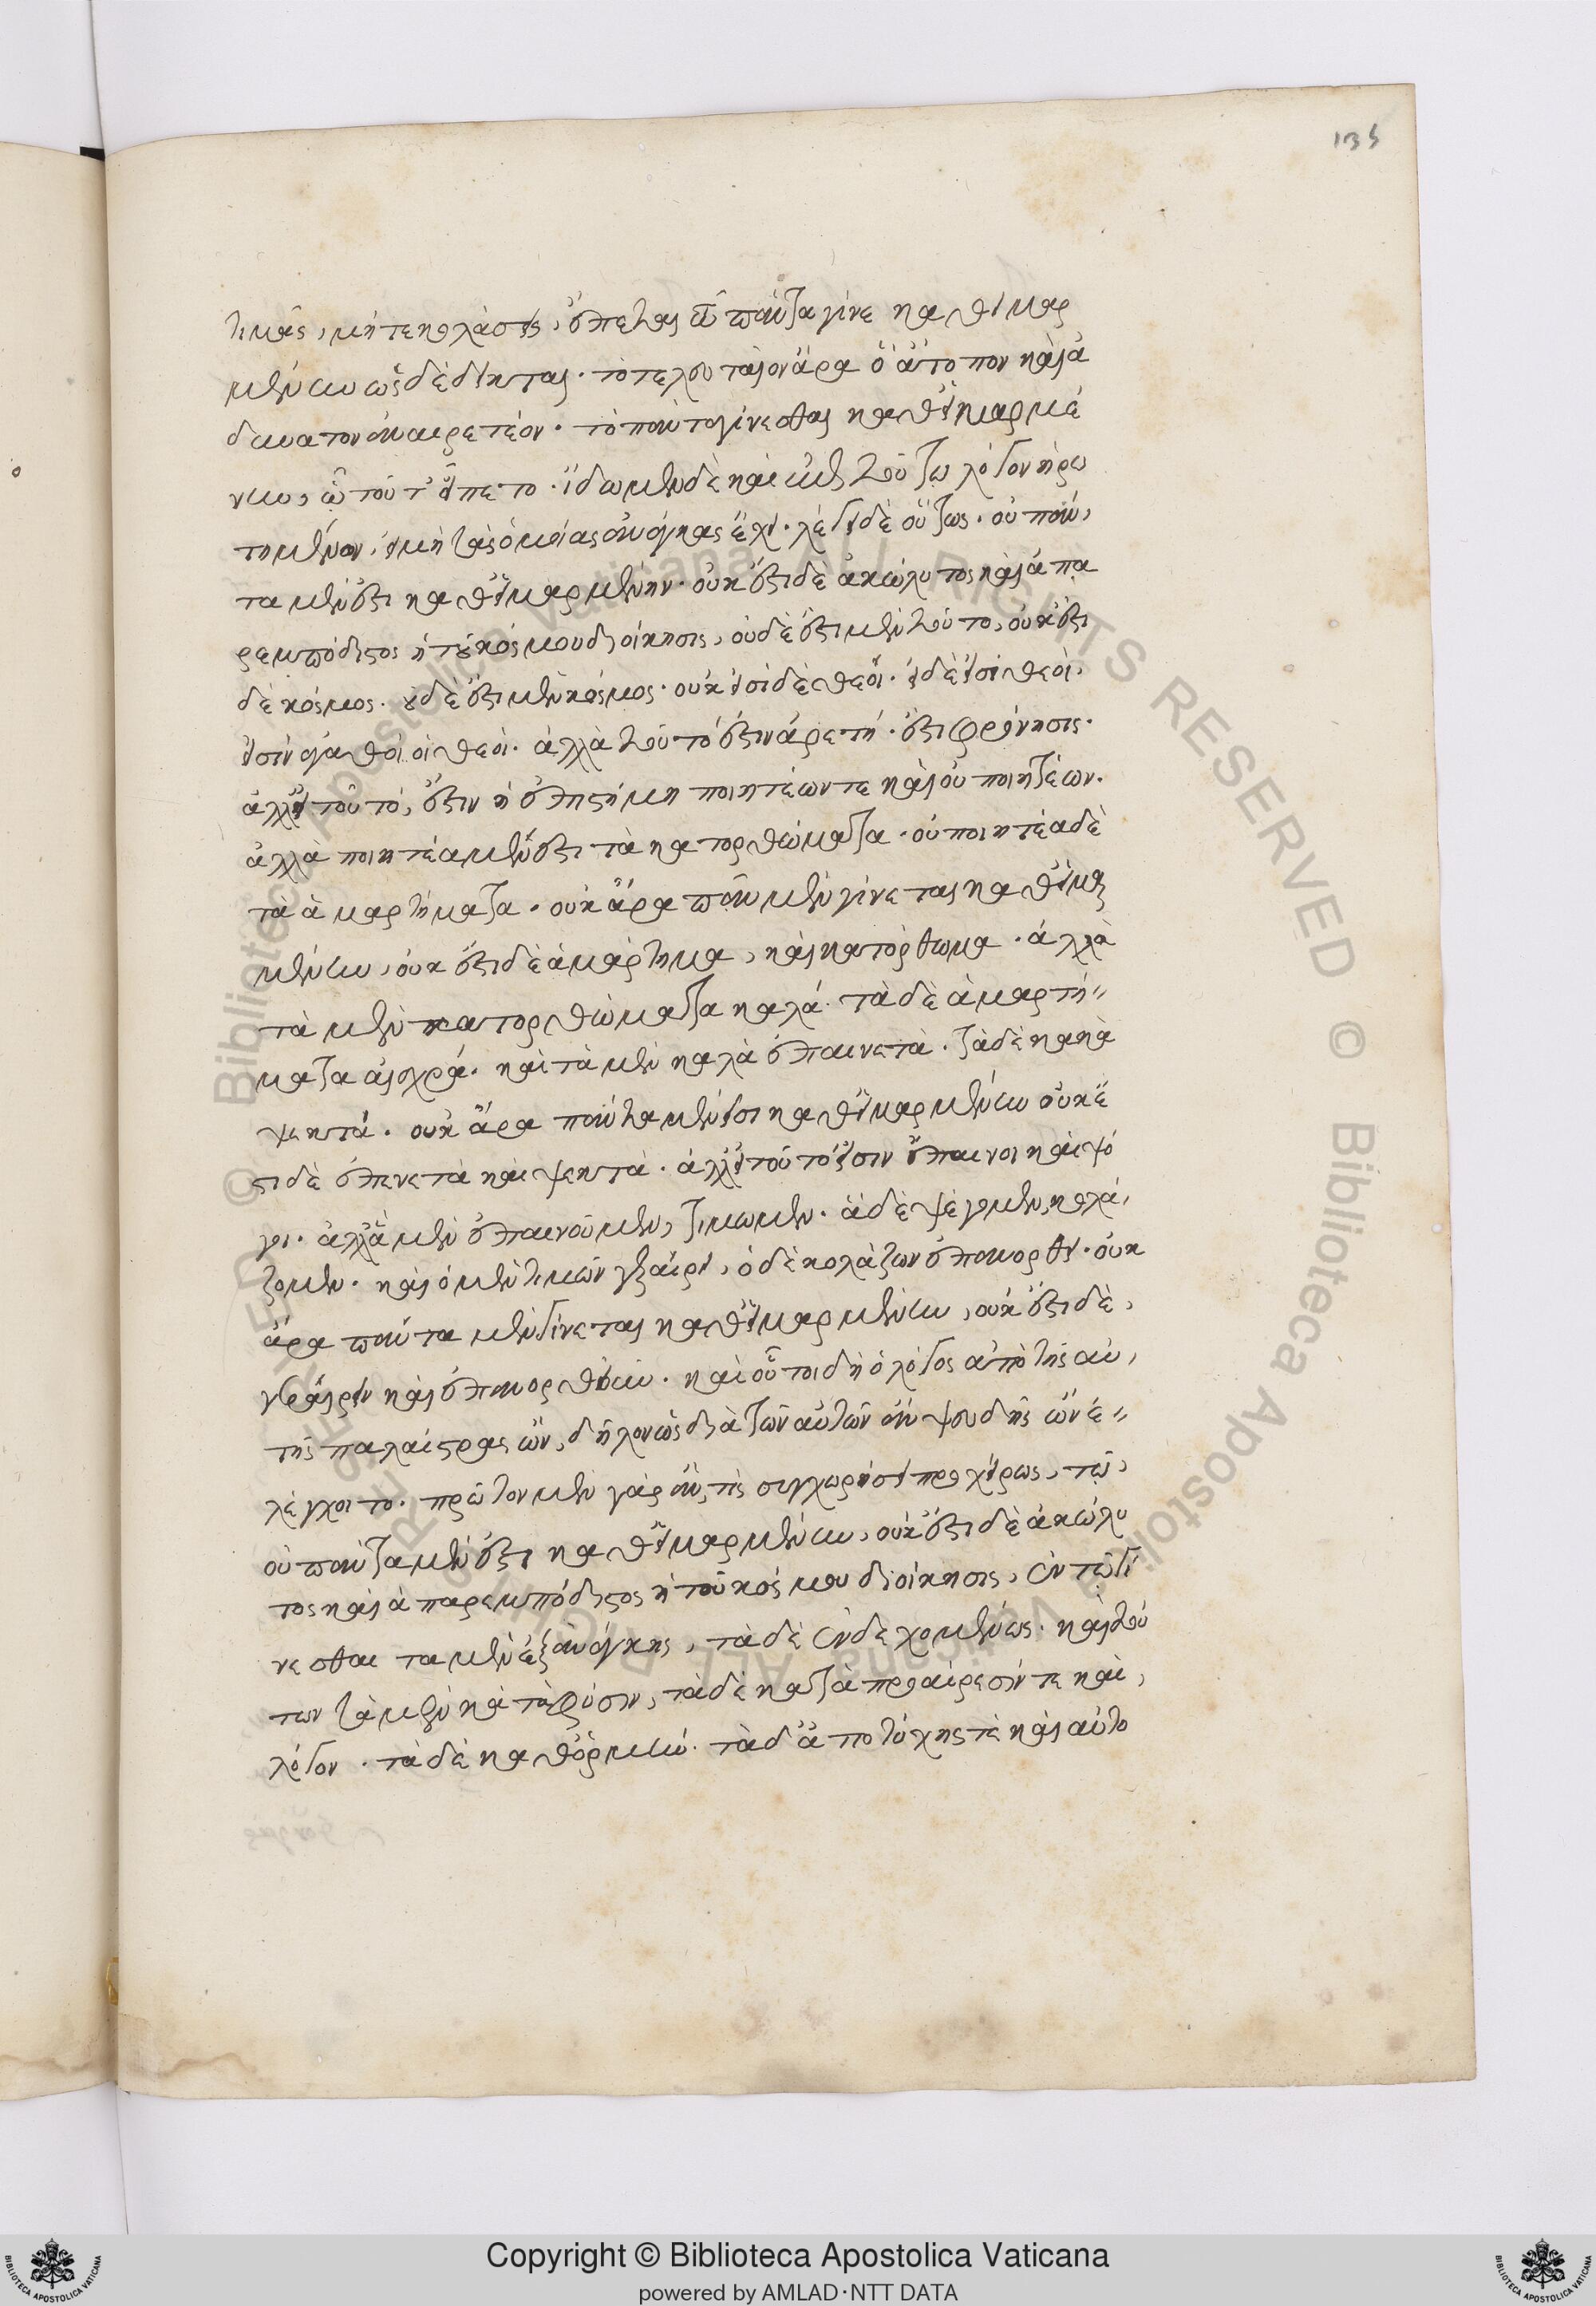 135
τιμᾶς, μήτε κολάσεις, ἕπεται τῶ πάντα γίνε καθ' εἱμαρ
μένην ὡς δέδεικται. τὸ τελευταῖον ἄρα ὃ ἄτοπον καὶ ἀ
δύνατον ἀναιρετέον. τὸ πάντα γίνεσθαι καθ' εἱμαρμέ
νην, ᾧ τοῦτ' εἵπετο. ἴδωμεν δὲ καὶ τὸν ἐπὶ τούτω λόγον ἠρω
τημένον, εἰ μὴ τὰς ὁμοίας ἀνάγκας ἔχει. λέγει δὲ οὕτως. οὐ πάν,
τα μὲν ἔστι καθ' εἱμαρμένην. οὐκ ἔστι δὲ ἀκώλυτος καὶ ἀπα
ρεμπόδιστος ἡ τοῦ κόσμου διοίκησις, οὐδὲ ἔστι μὲν τοῦτο, οὐκ ἔστι
δὲ κόσμος. οὐδὲ ἔστι μὲν κόσμος. οὐκ εἰσὶ δὲ θεοί. εἰ δὲ εἰσὶ θεοὶ.
εἰσὶν ἀγαθοὶ οἱ θεοί. ἀλλὰ τοῦτό ἐστιν ἀρετή. ἔστι φρόνησις.
ἀλλ' εἰ τοῦτό, ἔστιν ἡ ἐπιστήμη ποιητέων τε καὶ οὐ ποιητέων.
ἀλλὰ ποιητέα μὲν ἔστι τὰ κατορθώματα. οὐ ποιητέα δὲ
τὰ ἁμαρτήματα. οὐκ ἄρα πᾶν μὲν γίνεται καθ' εἱμαρ
μένην, οὐκ ἔστι δὲ ἁμάρτημα, καὶ κατόρθωμα. ἀλλὰ
τὰ μὲν κατορθώματα καλά. τὰ δὲ ἁμαρτή
ματα αἰσχρά. καὶ τὰ μὲν καλὰ ἐπαινετὰ. τὰ δὲ κακὰ
ψεκτά. οὐκ ἄρα πάντα μέν εἰσι καθ' εἱμαρμένην οὐκ ἔ
στι δὲ ἐπενετὰ καὶ ψεκτὰ. ἀλλ' εἰ τοῦτό εἰσιν ἔπαινοι καὶ ψό
γοι. ἀλλ' ἃ μὲν ἐπαινοῦμεν, τιμῶμεν. ἃ δὲ ψέγομεν, κολά,
ζομεν. καὶ ὁ μὲν τιμῶν γεραίρει, ὁ δὲ κολάζων ἐπανορθεῖ. οὐκ
ἄρα πάντα μὲν γίνεται καθ' εἱμαρμένην, οὐκ ἔστι δὲ,
γεραίρειν καὶ ἐπανορθεῖν. καὶ οὗτοι δὴ ὁ λόγος ἀπὸ τῆς αὐ,
τῆς παλαίστρας ὢν, δῆλον ὡς διὰ τῶν αὐτῶν ἂν ψευδὴς ὢν ἐ
λέγχοιτο. πρῶτον μὲν γὰρ ἂν, τίς συγχωρήσει προχείρως, τῶ,
οὐ πάντα μὲν ἔστι καθ' εἱμαρμένην, οὐκ ἔστι δὲ ἀκώλυ
τος καὶ ἀπαρεμπόδιστος ἡ τοῦ κόσμου διοίκησις, ἐν τῶ γί
νεσθαι τα μὲν ἐξ ἀνάγκης, τὰ δὲ ἐνδεχομένως. καὶ τού
των τὰ μὲν κατὰ φύσιν, τὰ δὲ κατὰ προαίρεσίν τε καὶ,
λόγον. τὰ δὲ καθ' ὁρμήν. τὰ δ' ἀπὸ τύχης τὲ καὶ αὐτο
Copyright © Biblioteca Apostolica Vaticana
powered by AMLAD·NTT DATA